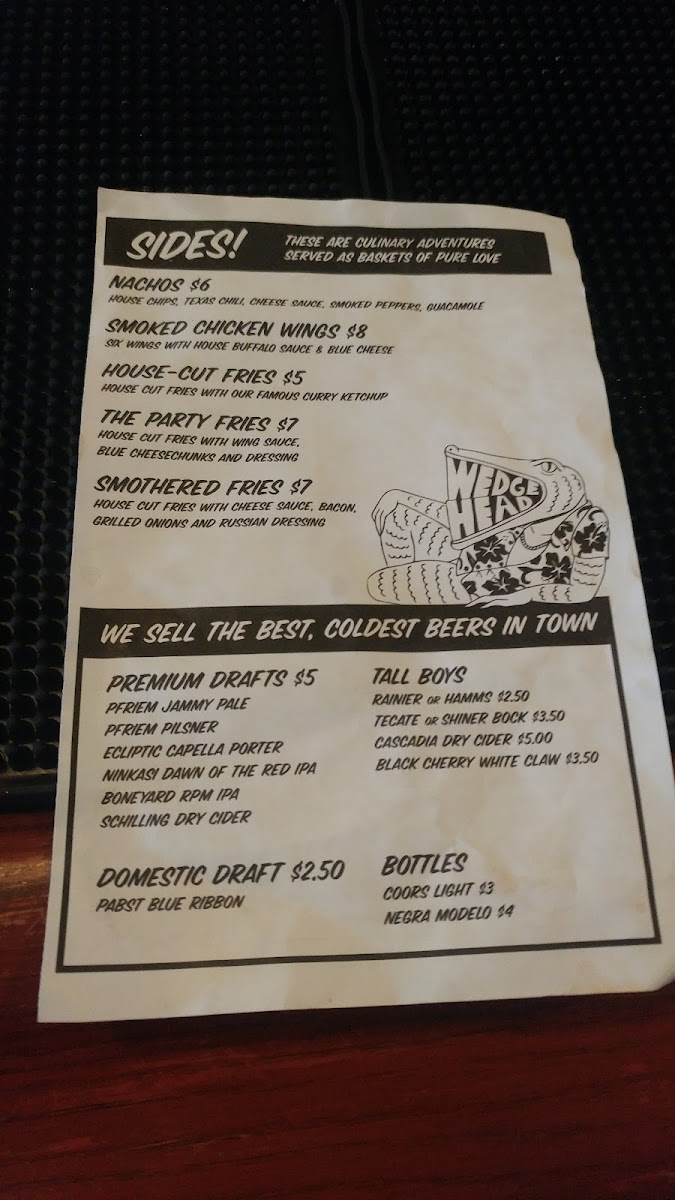 SIDES!
THESE ARE CULINARY ADVENTURES
SERVED AS BASKETS OF PURE LOVE
NACHOS $6
HOUSE CHIPS, TEXAS CHILI, CHEESE SAUCE, SMOKED PEPPERS, GUACAMOLE
SMOKED CHICKEN WINGS $8
SIX WINGS WITH HOUSE BUFFALO SAUCE & BLUE CHEESE
HOUSE-CUT FRIES $5
HOUSE CUT FRIES WITH OUR FAMOUS CURRY KETCHUP
THE PARTY FRIES $7
HOUSE CUT FRIES WITH WING SAUCE,
BLUE CHEESECHUNKS AND DRESSING
SMOTHERED FRIES $7
HOUSE CUT FRIES WITH CHEESE SAUCE, BACON,
GRILLED ONIONS AND RUSSIAN DRESSING
WEDGE
HEAD
WE SELL THE BEST, COLDEST BEERS IN TOWN
PREMIUM DRAFTS $5
PFRIEM JAMMY PALE
PFRIEM PILSNER
ECLIPTIC CAPELLA PORTER
NINKASI DAWN OF THE RED IPA
BONEYARD RPM IPA
SCHILLING DRY CIDER
DOMESTIC DRAFT $2.50
PABST BLUE RIBBON
TALL BOYS
RAINIER OR HAMMS $2.50
TECATE OR SHINER BOCK $3.50
CASCADIA DRY CIDER $5.00
BLACK CHERRY WHITE CLAW $3.50
BOTTLES
COORS LIGHT $3
NEGRA MODELO $4